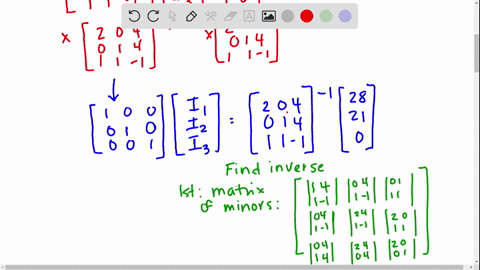 x [2 0 4; 0 1 4; 1 1 -1] x [2; 0 1 4; 1 1 -1]
[1 0 0; 0 1 0; 0 0 1] [I1; I2; I3] = [2 0 4; 0 1 4; 1 1 -1]^-1 [28; 21; 0]
Find inverse
1st: matrix
of minors:
[|1 4; 1 -1| |0 4; 1 -1| |0 1; 1 1|
|0 4; 1 -1| |2 4; 1 -1| |2 0; 1 1|
|0 4; 1 4| |2 4; 0 4| |2 0; 0 1|]